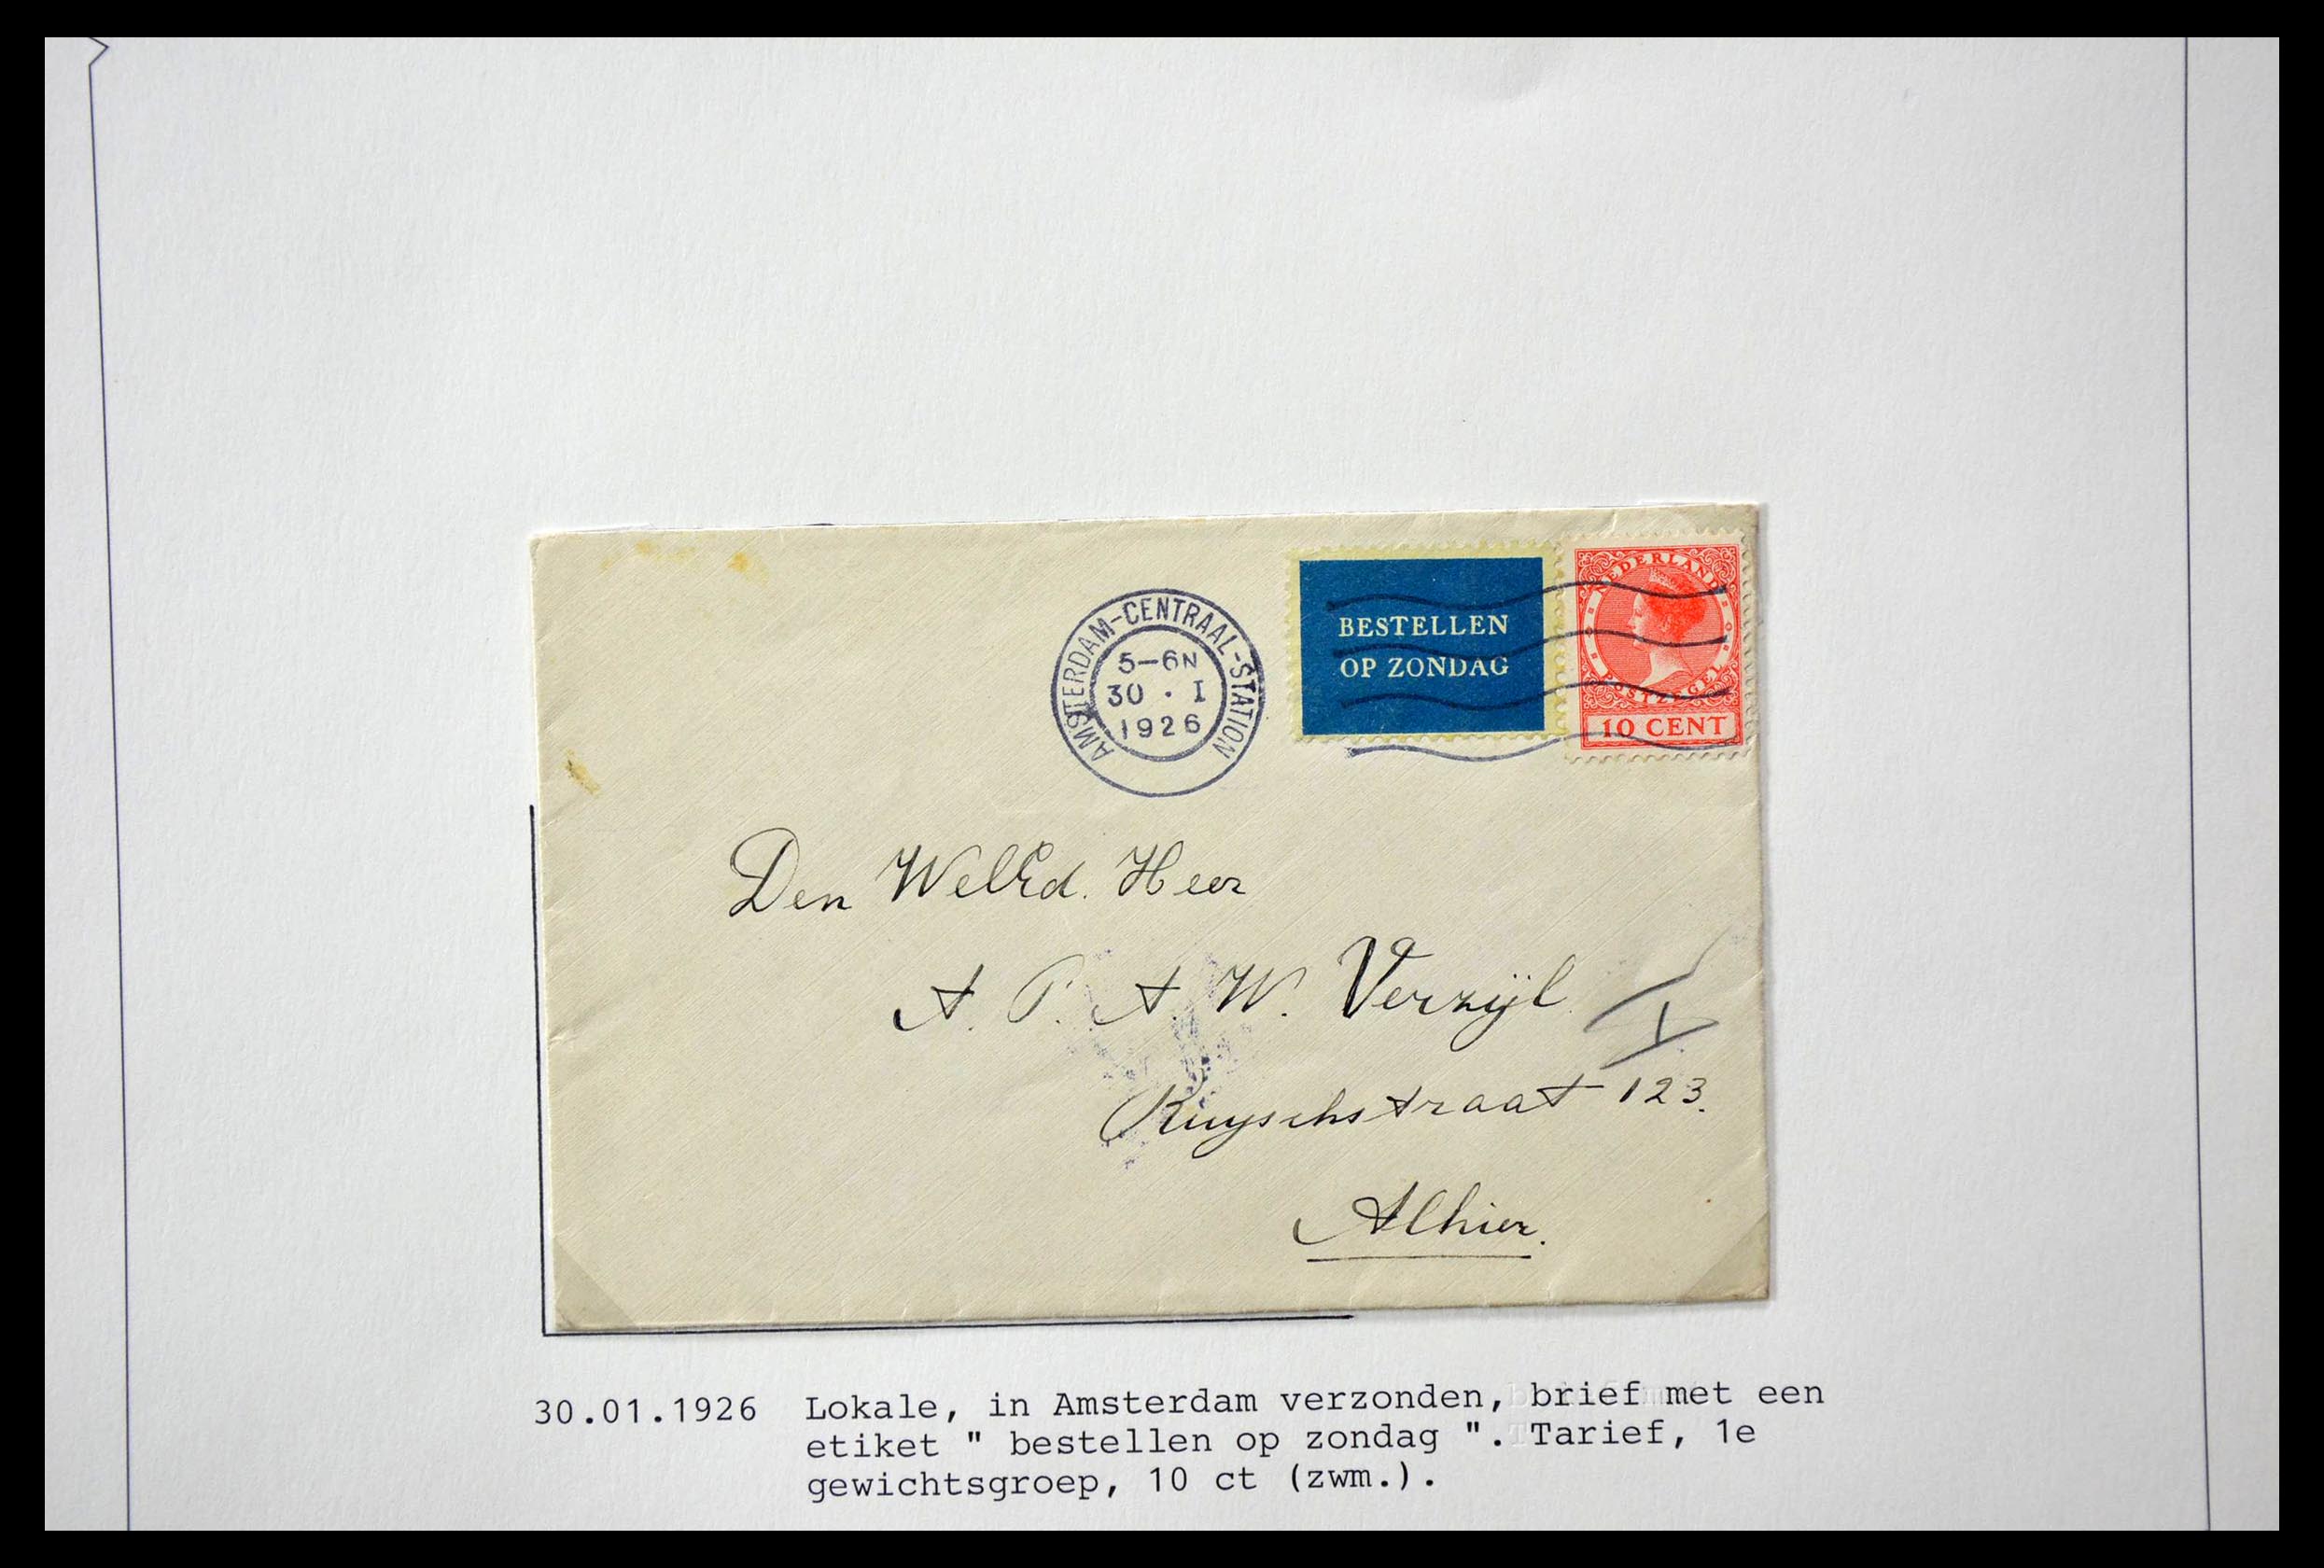 AMSTERDAM-CENTRAAL-STATION
5-6N
30 · I
1926
BESTELLEN
OP ZONDAG
NEDERLAND
POSTZEGEL
10 CENT
Den WelEd. Heer
A. P. A. W. Verzijl
Ruyschstraat 123.
Alhier.
30.01.1926 Lokale, in Amsterdam verzonden, brief met een
etiket " bestellen op zondag ". Tarief, 1e
gewichtsgroep, 10 ct (zwm.).